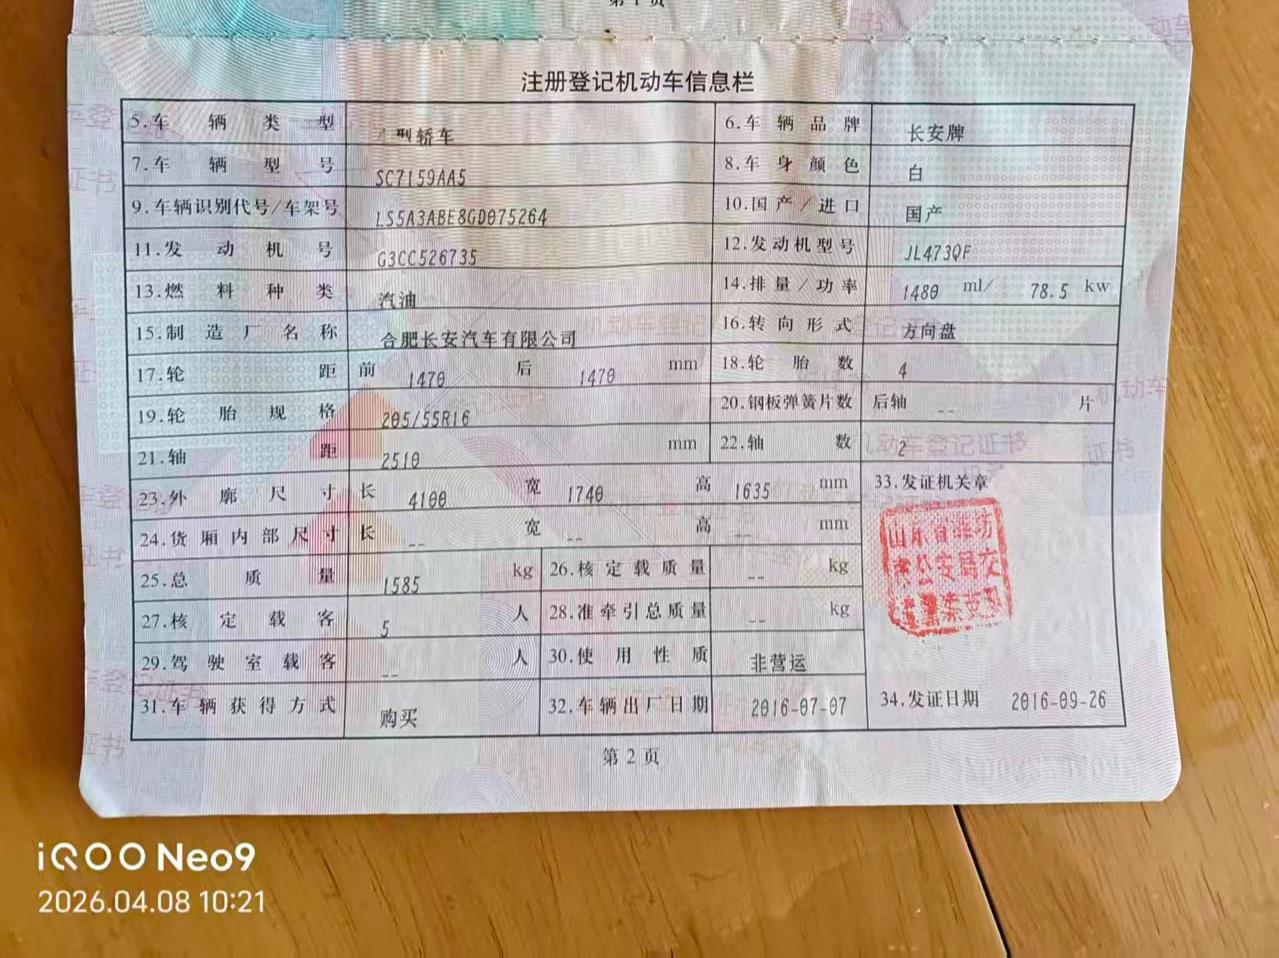 第1页
注册登记机动车信息栏
5.车辆类型 型轿车 6.车辆品牌 长安牌
7.车辆型号 SC7159AA5 8.车身颜色 白
9.车辆识别代号/车架号 LS5A3ABE8GD075264 10.国产/进口 国产
11.发动机号 G3CC526735 12.发动机型号 JL473QF
13.燃料种类 汽油 14.排量/功率 1480 ml/ 78.5 kw
15.制造厂名称 合肥长安汽车有限公司 16.转向形式 方向盘
17.轮距 前 1470 后 1470 mm 18.轮胎数 4
19.轮胎规格 205/55R16 20.钢板弹簧片数 后轴 -- 片
21.轴距 2510 mm 22.轴数 2
23.外廓尺寸 长 4100 宽 1740 高 1635 mm 33.发证机关章
24.货厢内部尺寸 长 -- 宽 -- 高 -- mm
山东省潍坊
市公安局交
25.总质量 1585 kg 26.核定载质量 -- kg
27.核定载客 5 人 28.准牵引总质量 -- kg
29.驾驶室载客 -- 人 30.使用性质 非营运
31.车辆获得方式 购买 32.车辆出厂日期 2016-07-07 34.发证日期 2016-09-26
第2页
iQOO Neo9
2026.04.08 10:21